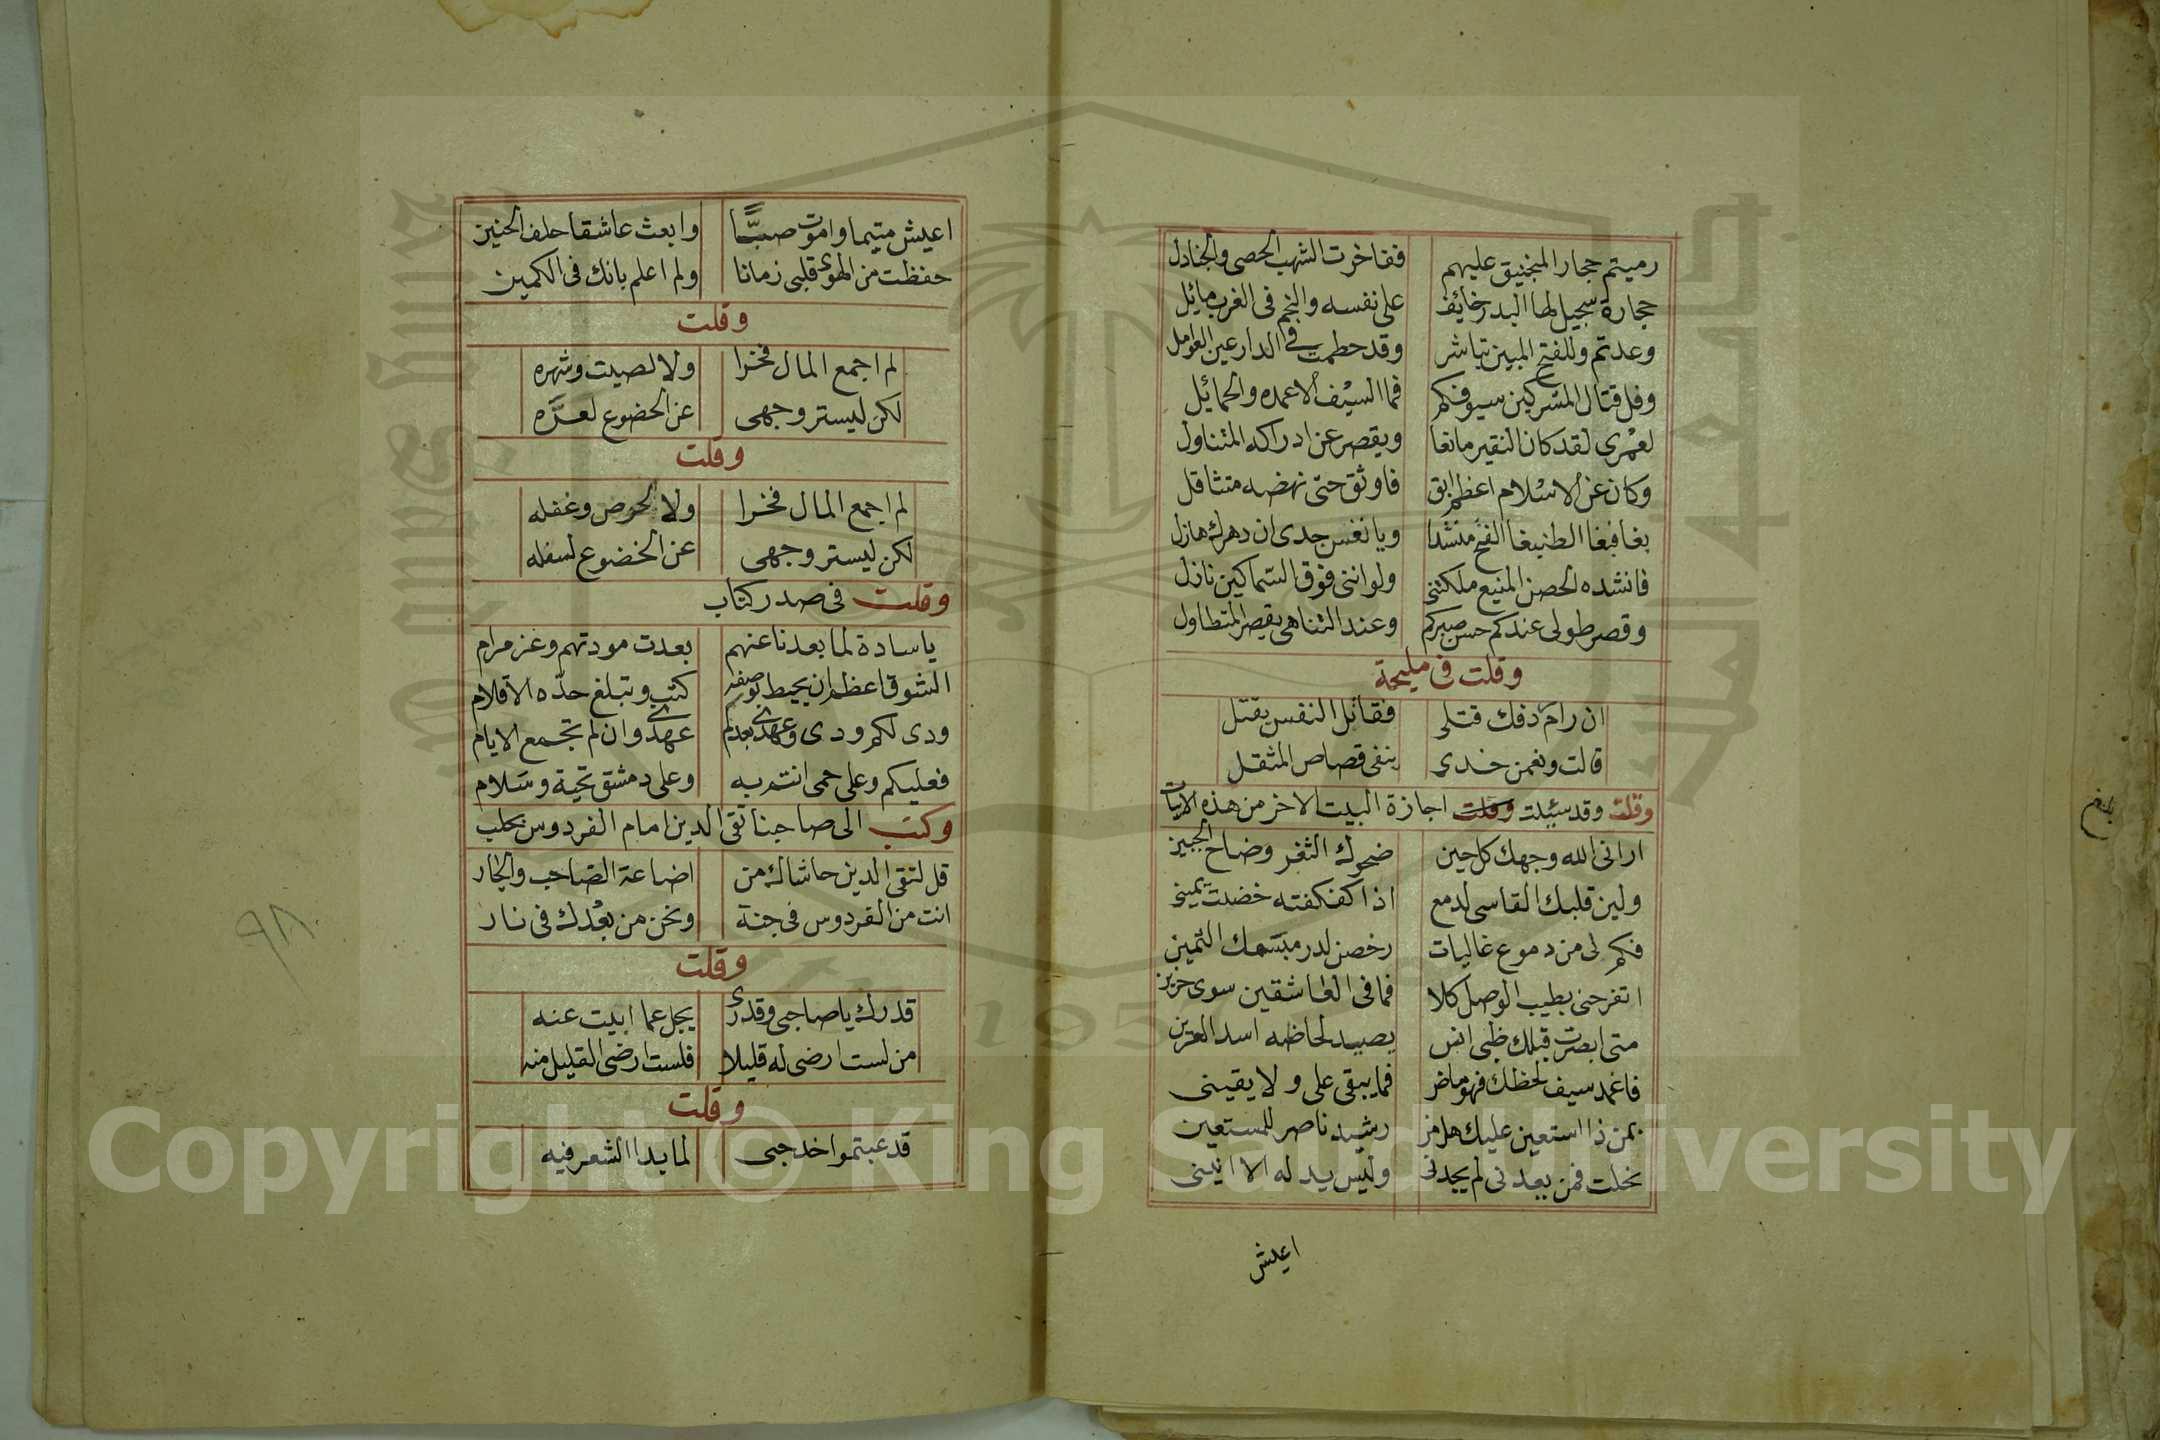 رميتم حجار المنجنيق عليهم ففاخرت الشهب الحصى والجنادل
حجارة سجيل لها البدر خائف على نفسه والنجم في الغرب مائل
وعدتم وللفتح المبين تباشر وقد حطمت في الدارعين العوامل
وفل قتال المشركين سيوفكم فما السيف الا عمده والحمائل
لعمرى لقد كان النقير مانعا ويقصر عن ادراكه المتناول
وكان عن الاسلام اعظم ابق فاوثق حتى نهضه متثاقل
بغا فبغا الطنبغا الفتح منشدا ويا نفس جدى ان دهرك هازل
فانشده الحصن المنيع ملكتنى ولو اننى فوق السماكين نازل
وقصر طولى عندكم حسن صبركم وعند التناهى يقصر المتطاول
وقلت فى مليحة
ان رام ردفك قتلى فقاتل النفس يقتل
قالت وبغمن خدى ينفى قصاص المثقل
وقلت وقد سئيلت وقلت اجازة البيت الاخر من هذه الابيات
ارانى الله وجهك كل حين ضحوك الثغر وضاح الجبين
ولين قلبك القاسى لدمع اذا كفكفته خضلت يمينى
فكم لى من دموع غاليات رخصن لدر مبسمك الثمين
اتفرحنى بطيب الوصل كلا فما فى العاشقين سوى حزين
متى ابصرت قبلك ظبى انس يصيد لحاظه اسد العرين
فاغمد سيف لحظك فهو ماض فما يبقى على ولا يقينى
بمن ذا استعين عليك هل من رشيد ناصر للمستعين
بخلت فمن يعدنى لم يجدنى وليس يدله الا انينى
اعيش
بلغ
اعيش متيما واموت صبًّا وابعث عاشقا حلف الحنين
حفظت من الهوى قلبى زمانا ولم اعلم بانك فى الكمين
وقلت
لم اجمع المال فخرا ولا لصيت وشهره
لكن ليستر وجهى عن الخضوع لعرّه
وقلت
لم اجمع المال فخرا ولا لحرص وغفله
لكن ليستر وجهى عن الخضوع لسفله
وقلت فى صدر كتاب
يا سادة لما بعدنا عنهم بعدت مودتهم وعز مرام
الشوق اعظم ان يحيط بوصفه كتب وتبلغ حدّه الاقلام
ودى لكم ودى وعهدى بعدكم عهدى وان لم تجمع الايام
فعليكم وعلى حمى انتم به وعلى دمشق تحية وسلام
وكتب الى صاحبنا تقى الدين امام الفردوس بحلب
قل لتقى الدين حاشاك من اضاعة الصاحب والجار
انت من الفردوس فى جنة ونحن من بعدك فى نار
٩٨
وقلت
قدرك يا صاحبى وقدرى يجل عما ابيت عنه
من لست ارضى له قليلا فلست ارضى القليل منه
وقلت
قد عبتموا خد حبى لما بدا الشعر فيه
Copyright © King Saud University
1957